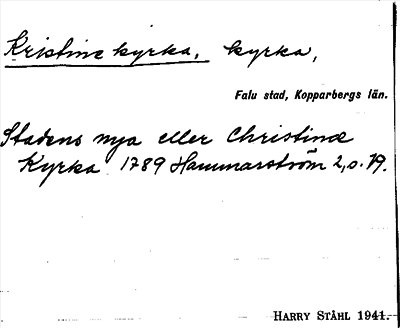 Kristine kyrka, kyrka,
Falu stad, Kopparbergs län.
Stadens nya eller Christinæ
Kyrka 1789 Hammarström 2, s. 19.
HARRY STÅHL 1941.